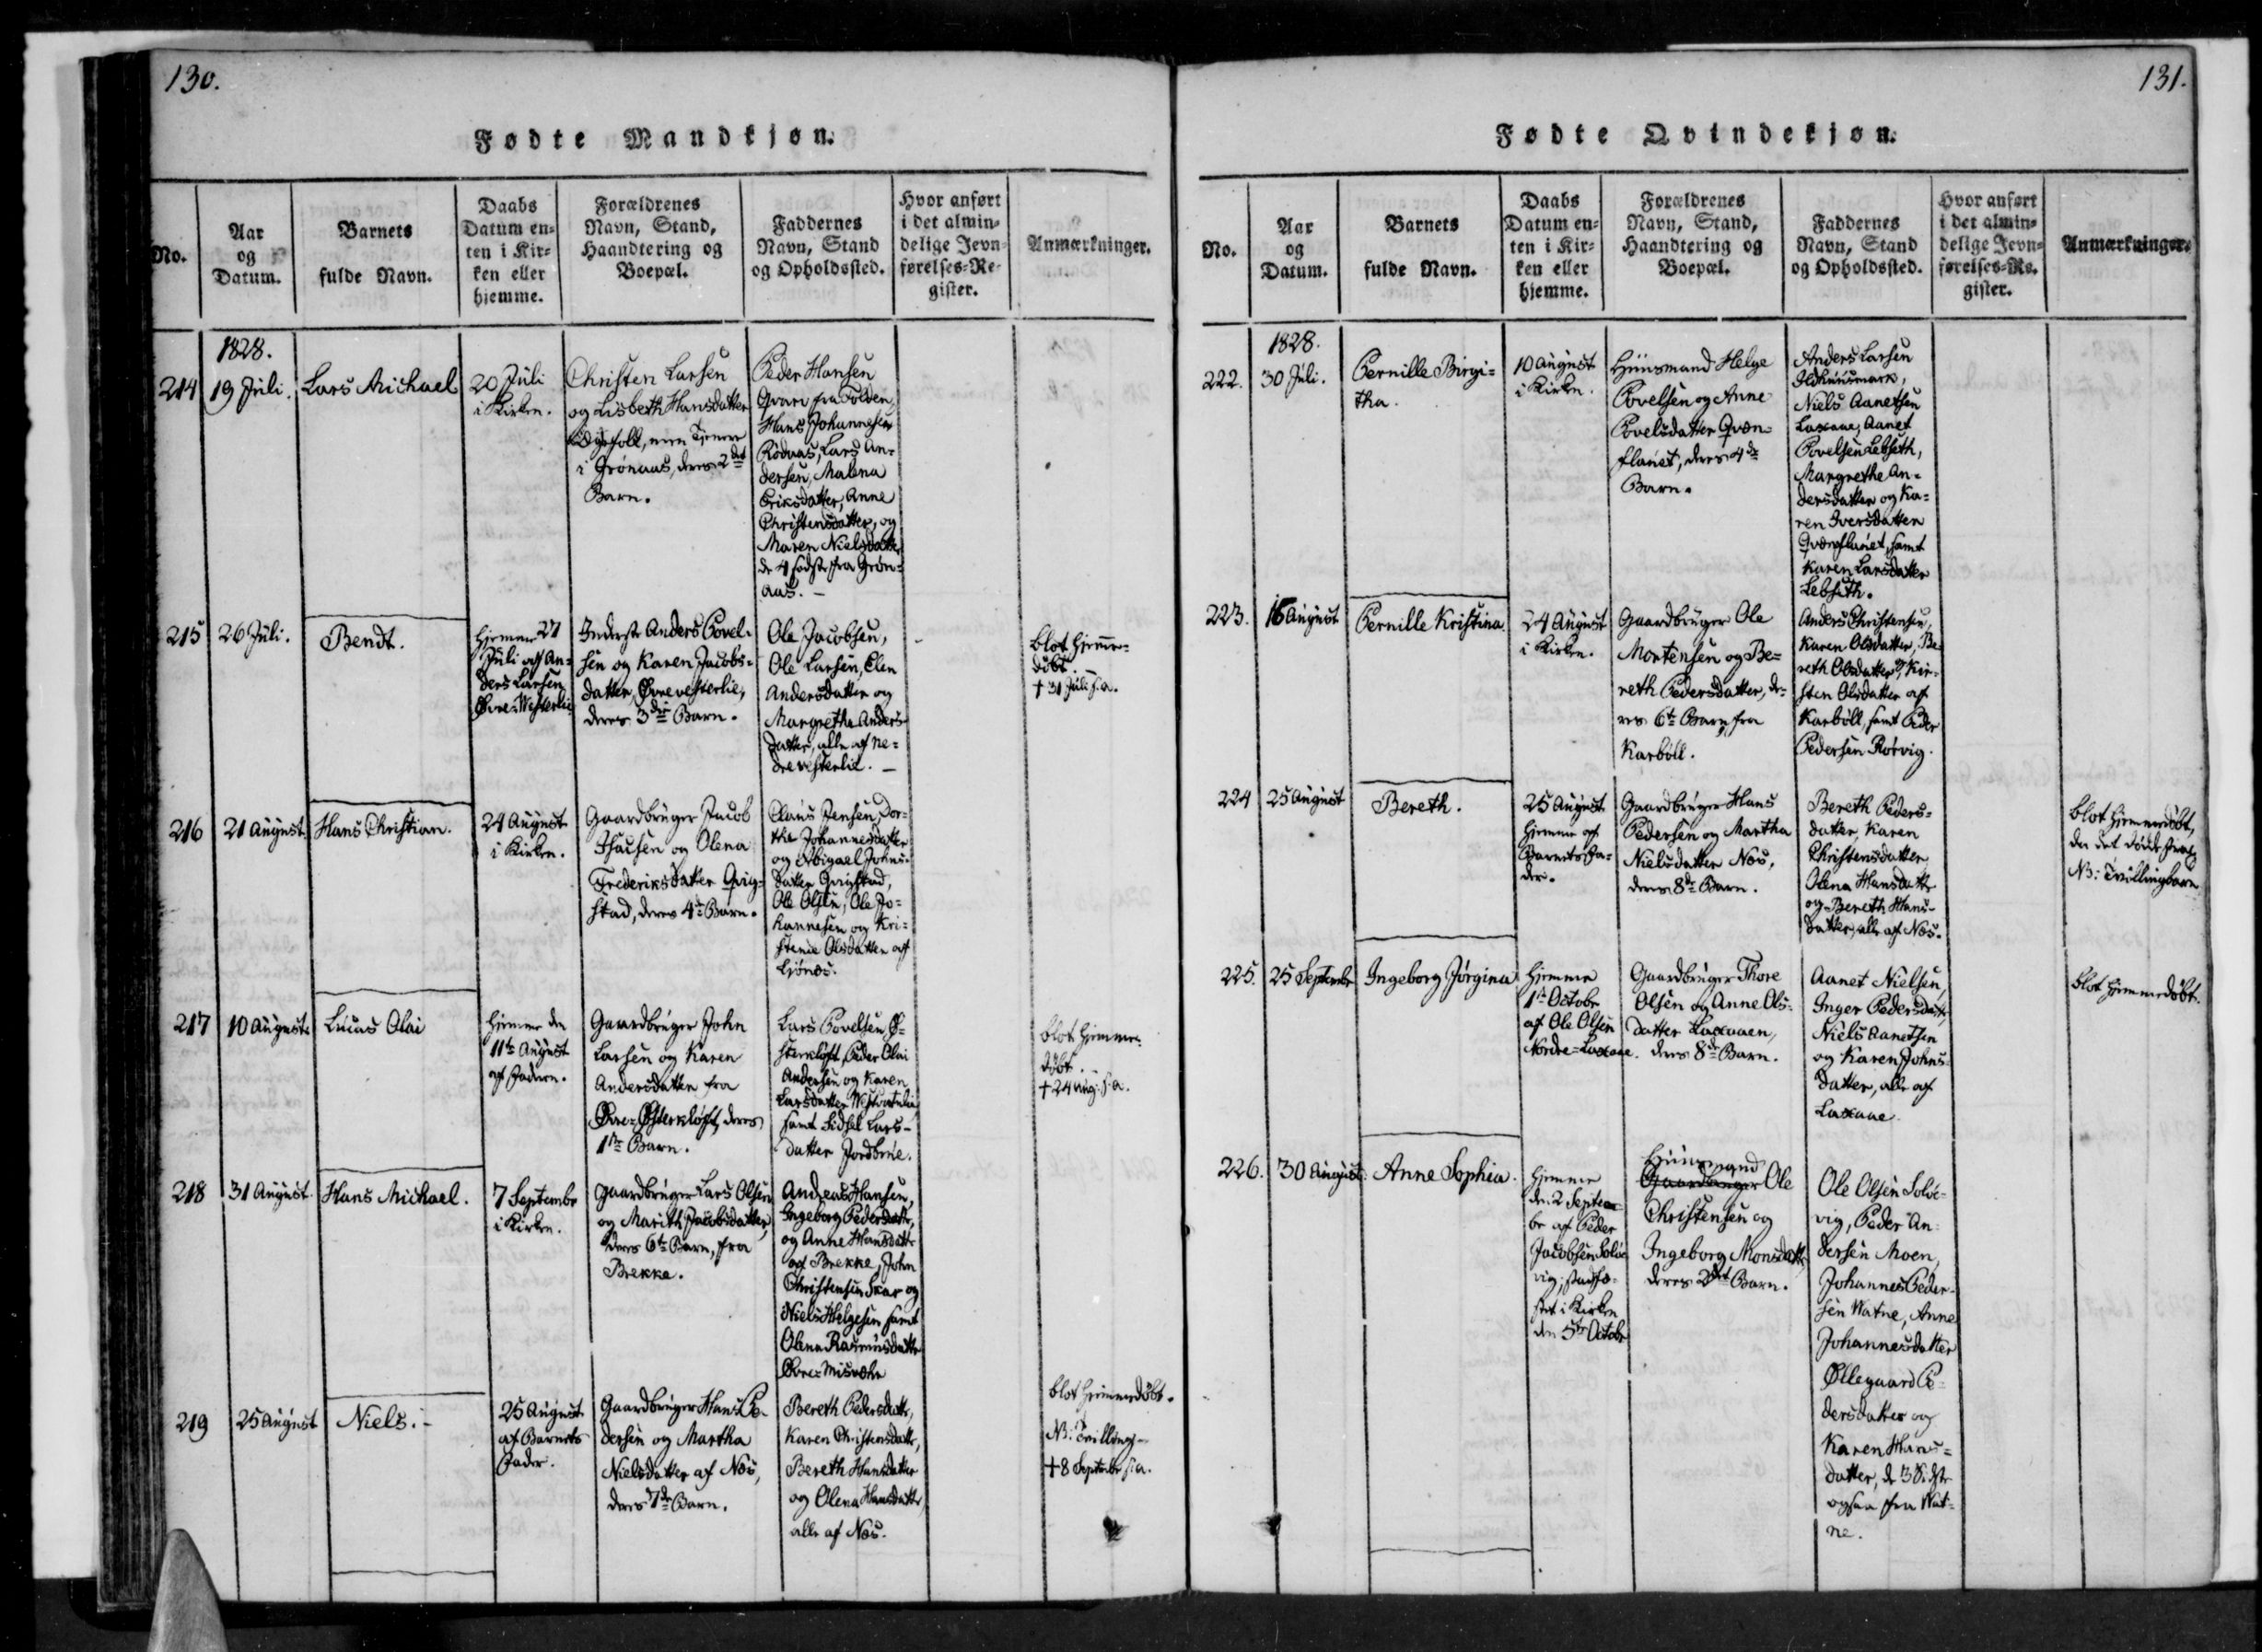 130.
Fødte Mandkjøn.
No.
Aar
og
Datum.
Barnets
fulde Navn.
Daabs
Datum en-
ten i Kir-
ken eller
hjemme.
Forældrenes
Navn, Stand,
Haandtering og
Boepæl.
Faddernes
Navn, Stand
og Opholdssted.
Hvor anført
i det almin-
delige Jevn-
førelses-Re-
gister.
Anmærkninger.
1828.
214
19 Juli.
Lars Michael
20 Juli
i Kirken.
Christen Larsen
og Lisbeth Hansdatter
Ægtefolk, men Tjenere
i Grønaas, deres 2det
Barn.
Peder Hansen
Qvare fra Folden,
Hans Johannesen
Rødaas, Lars An-
dersen, Malena
Eriksdatter, Anne
Christensdatter, og
Maren Nielsdatter
de 4 sidste fra Grøn-
aas. -
215
26 Juli.
Bendt.
hjemme 27
Juli af An-
ders Larsen
Øvre-Westerlie
Inderste Anders Povel-
sen og Karen Jacobs-
datter, Øvrevesterlie,
deres 3die Barn.
Ole Jacobsen,
Ole Larsen, Elen
Andersdatter og
Margretha Anders-
datter, alle af Ne-
drevesterlie. -
blot hjemme-
døbt.
† 31 Juli s.a.
216
21 August
Hans Christian.
24 August
i Kirken.
Gaardbruger Jacob
Isacsen og Olena
Frederiksdatter Qvig-
stad, deres 4de Barn.
Claus Jensen, Dor-
the Johannesdatter
og Abigael Johns-
datter Qvigstad,
Ole Olsen, Ole Jo-
hannesen og Kri-
stense Olsdatter af
217
10 August
Lucas Olai
hjemme den
11te August
af Faderen.
Gaardbruger John
Larsen og Karen
Andersdatter fra
Øvre-Østerkløft, deres
1ste Barn.
Lars Povelsen Ø-
sterkløft, Peder Olai
Andersen og Karen
Larsdatter
samt Sidsel Lars-
datter Jordbrue.
blot hjemme-
døbt.
† 24 Aug: s.a.
218
31 August.
Hans Michael.
7 Septembr
i Kirken.
Gaardbruger Lars Olsen
og Marith Jacobsdatter,
deres 6te Barn, fra
Brekke.
Andreas Hansen,
Ingeborg Pedersdatter,
og Anne Hansdatter
af Brekke, John
Christensen Skar og
Niels Helgesen samt
Olena Rasmusdatter
Øvre-Misvær
219
25 August
Niels. -
25 August
af Barnets
Fader.
Gaardbruger Hans Pe-
dersen og Martha
Nielsdatter af Næs,
deres 7de Barn.
Bereth Pedersdatter,
Karen Christensdatter,
Bereth Hansdatter
og Olena Hansdatter,
alle af Næs.
blot hjemmedøbt.
NB: Tvilling -
† 8 Septembr s.a.
131.
Fødte Qvindekjøn.
No.
Aar
og
Datum.
Barnets
fulde Navn.
Daabs
Datum en-
ten i Kir-
ken eller
hjemme.
Forældrenes
Navn, Stand,
Haandtering og
Boepæl.
Faddernes
Navn, Stand
og Opholdssted.
Hvor anført
i det almin-
delige Jevn-
førelses-Re-
gister.
Anmærkninger.
1828.
222.
30 Juli.
Pernille Birgi-
tha.
10 August
i Kirken.
Huusmand Helge
Povelsen og Anne
Povelsdatter Qvæn-
flaaet, deres 4de
Barn.
Anders Larsen
Ildhuusmark,
Niels Aanetsen
Laxaae, Aanet
Povelsen Lebseth,
Margrethe An-
dersdatter og Ka-
ren Iversdatter
Qvænflaaet, samt
Karen Larsdatter
Lebseth.
223.
16 August
Pernille Kristina.
24 August
i Kirken.
Gaardbruger Ole
Mortensen og Be-
reth Pedersdatter, de-
res 6te Barn, fra
Karbøll.
Anders Christensen,
Karen Olsdatter, Be-
reth Olsdatter, Kir-
sten Olsdatter af
Karbøll, samt Peder
Pedersen Rørvig.
224
25 August
Bereth.
25 August
hjemme af
Barnets Fa-
der.
Gaardbruger Hans
Pedersen og Martha
Nielsdatter Næs,
deres 8de Barn.
Bereth Peders-
datter, Karen
Christensdatter
Olena Hansdatter
og Bereth Hans-
datter, alle af Næs.
blot hjemmedøbt,
da det døde strax
NB: Tvillingbarn
225.
25 Septembr
Ingeborg Jørgina
hjemme
1ste Octobr
af Ole Olsen
Nordre-Laxaae
Gaardbruger Thore
Olsen og Anne Ols-
datter Laxaaen,
deres 8de Barn.
Aanet Nielsen,
Inger Pedersdatter,
Niels Aanetsen
og Karen Johns-
datter, alle af
Laxaae.
blot hjemmedøbt.
226.
30 August.
Anne Sophia.
hjemme
den 2 Septem-
br af Peder
Jacobsen Soløe-
vig; stadfæ-
stet i Kirken
den 5te Octobr
Huusmand
Gaardbruger Ole
Christensen og
Ingeborg Monsdatter,
deres 2det Barn.
Ole Olsen Soløe-
vig, Peder An-
dersen Moen,
Johannes Peder-
sen Watne, Anne
Johannesdatter
Øllegaard Pe-
dersdatter og
Karen Hans-
datter, de 3 sidste
ogsaa fra Wat-
ne.